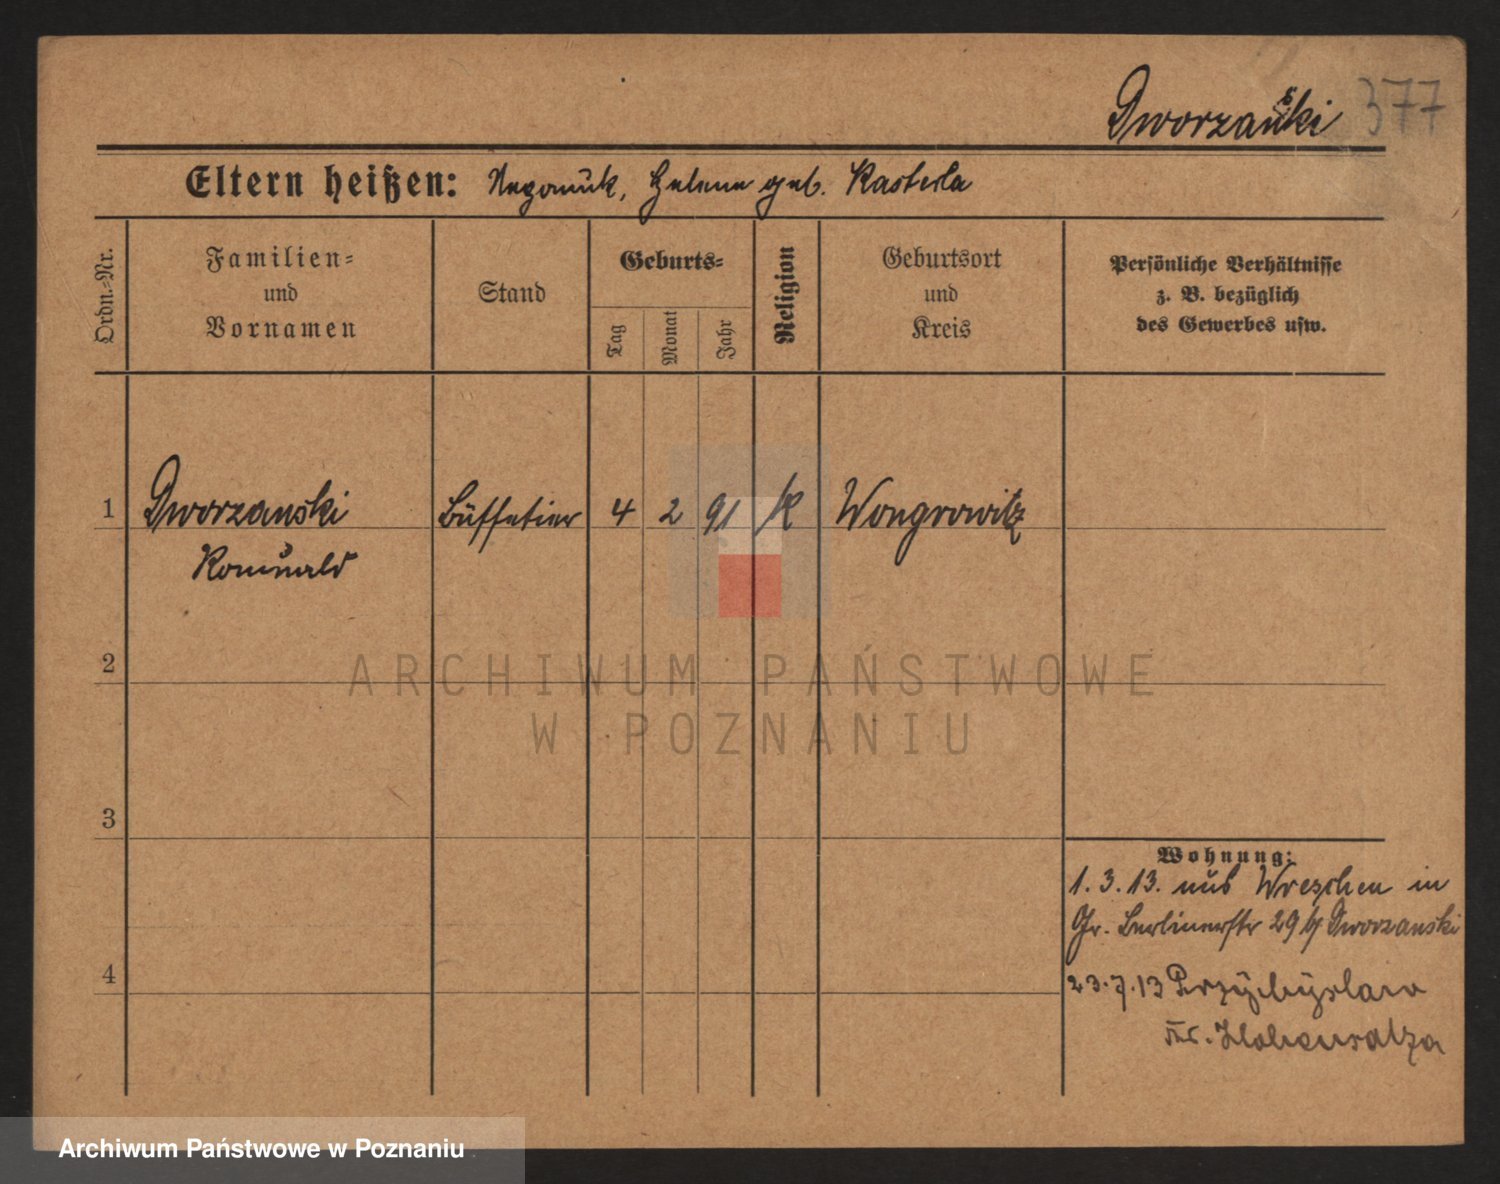 Dworzański 377
Eltern heißen: Nepomuk, Helene geb. Kasterla
Ordn.-Nr.
Familien-
und
Vornamen
Stand
Geburts-
Tag
Monat
Jahr
Religion
Geburtsort
und
Kreis
Persönliche Verhältnisse
z. B. bezüglich
des Gewerbes usw.
1 Dworzanski Büffetier 4 2 91 K Wongrowitz
Romuald
2
ARCHIWUM PAŃSTWOWE
W POZNANIU
3
Wohnung:
1. 3. 13. aus Wreschen in
Gr. Berlinerstr 29 b/ Dworzanski
4
23.7.13 Przybyslaw
Kr. Hohensalza
Archiwum Państwowe w Poznaniu